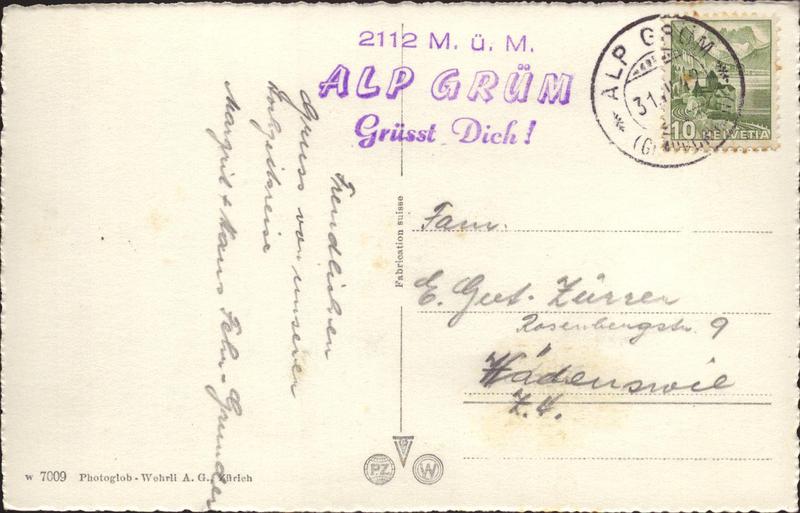 2112 M. ü. M.
ALP GRÜM
Grüsst Dich!
ALP GRÜM
31.
10 HELVETIA
Freudlichen
Gruss von unserer
Hochzeitsreise
Margrit + Hans Fehr-Grunder
Fabrication suisse
Fam.
E. Gut-Zürrer
Rosenbergstr. 9
Wädenswil
Z.H.
w 7009 Photoglob-Wehrli A. G., Zürich
PZ
W